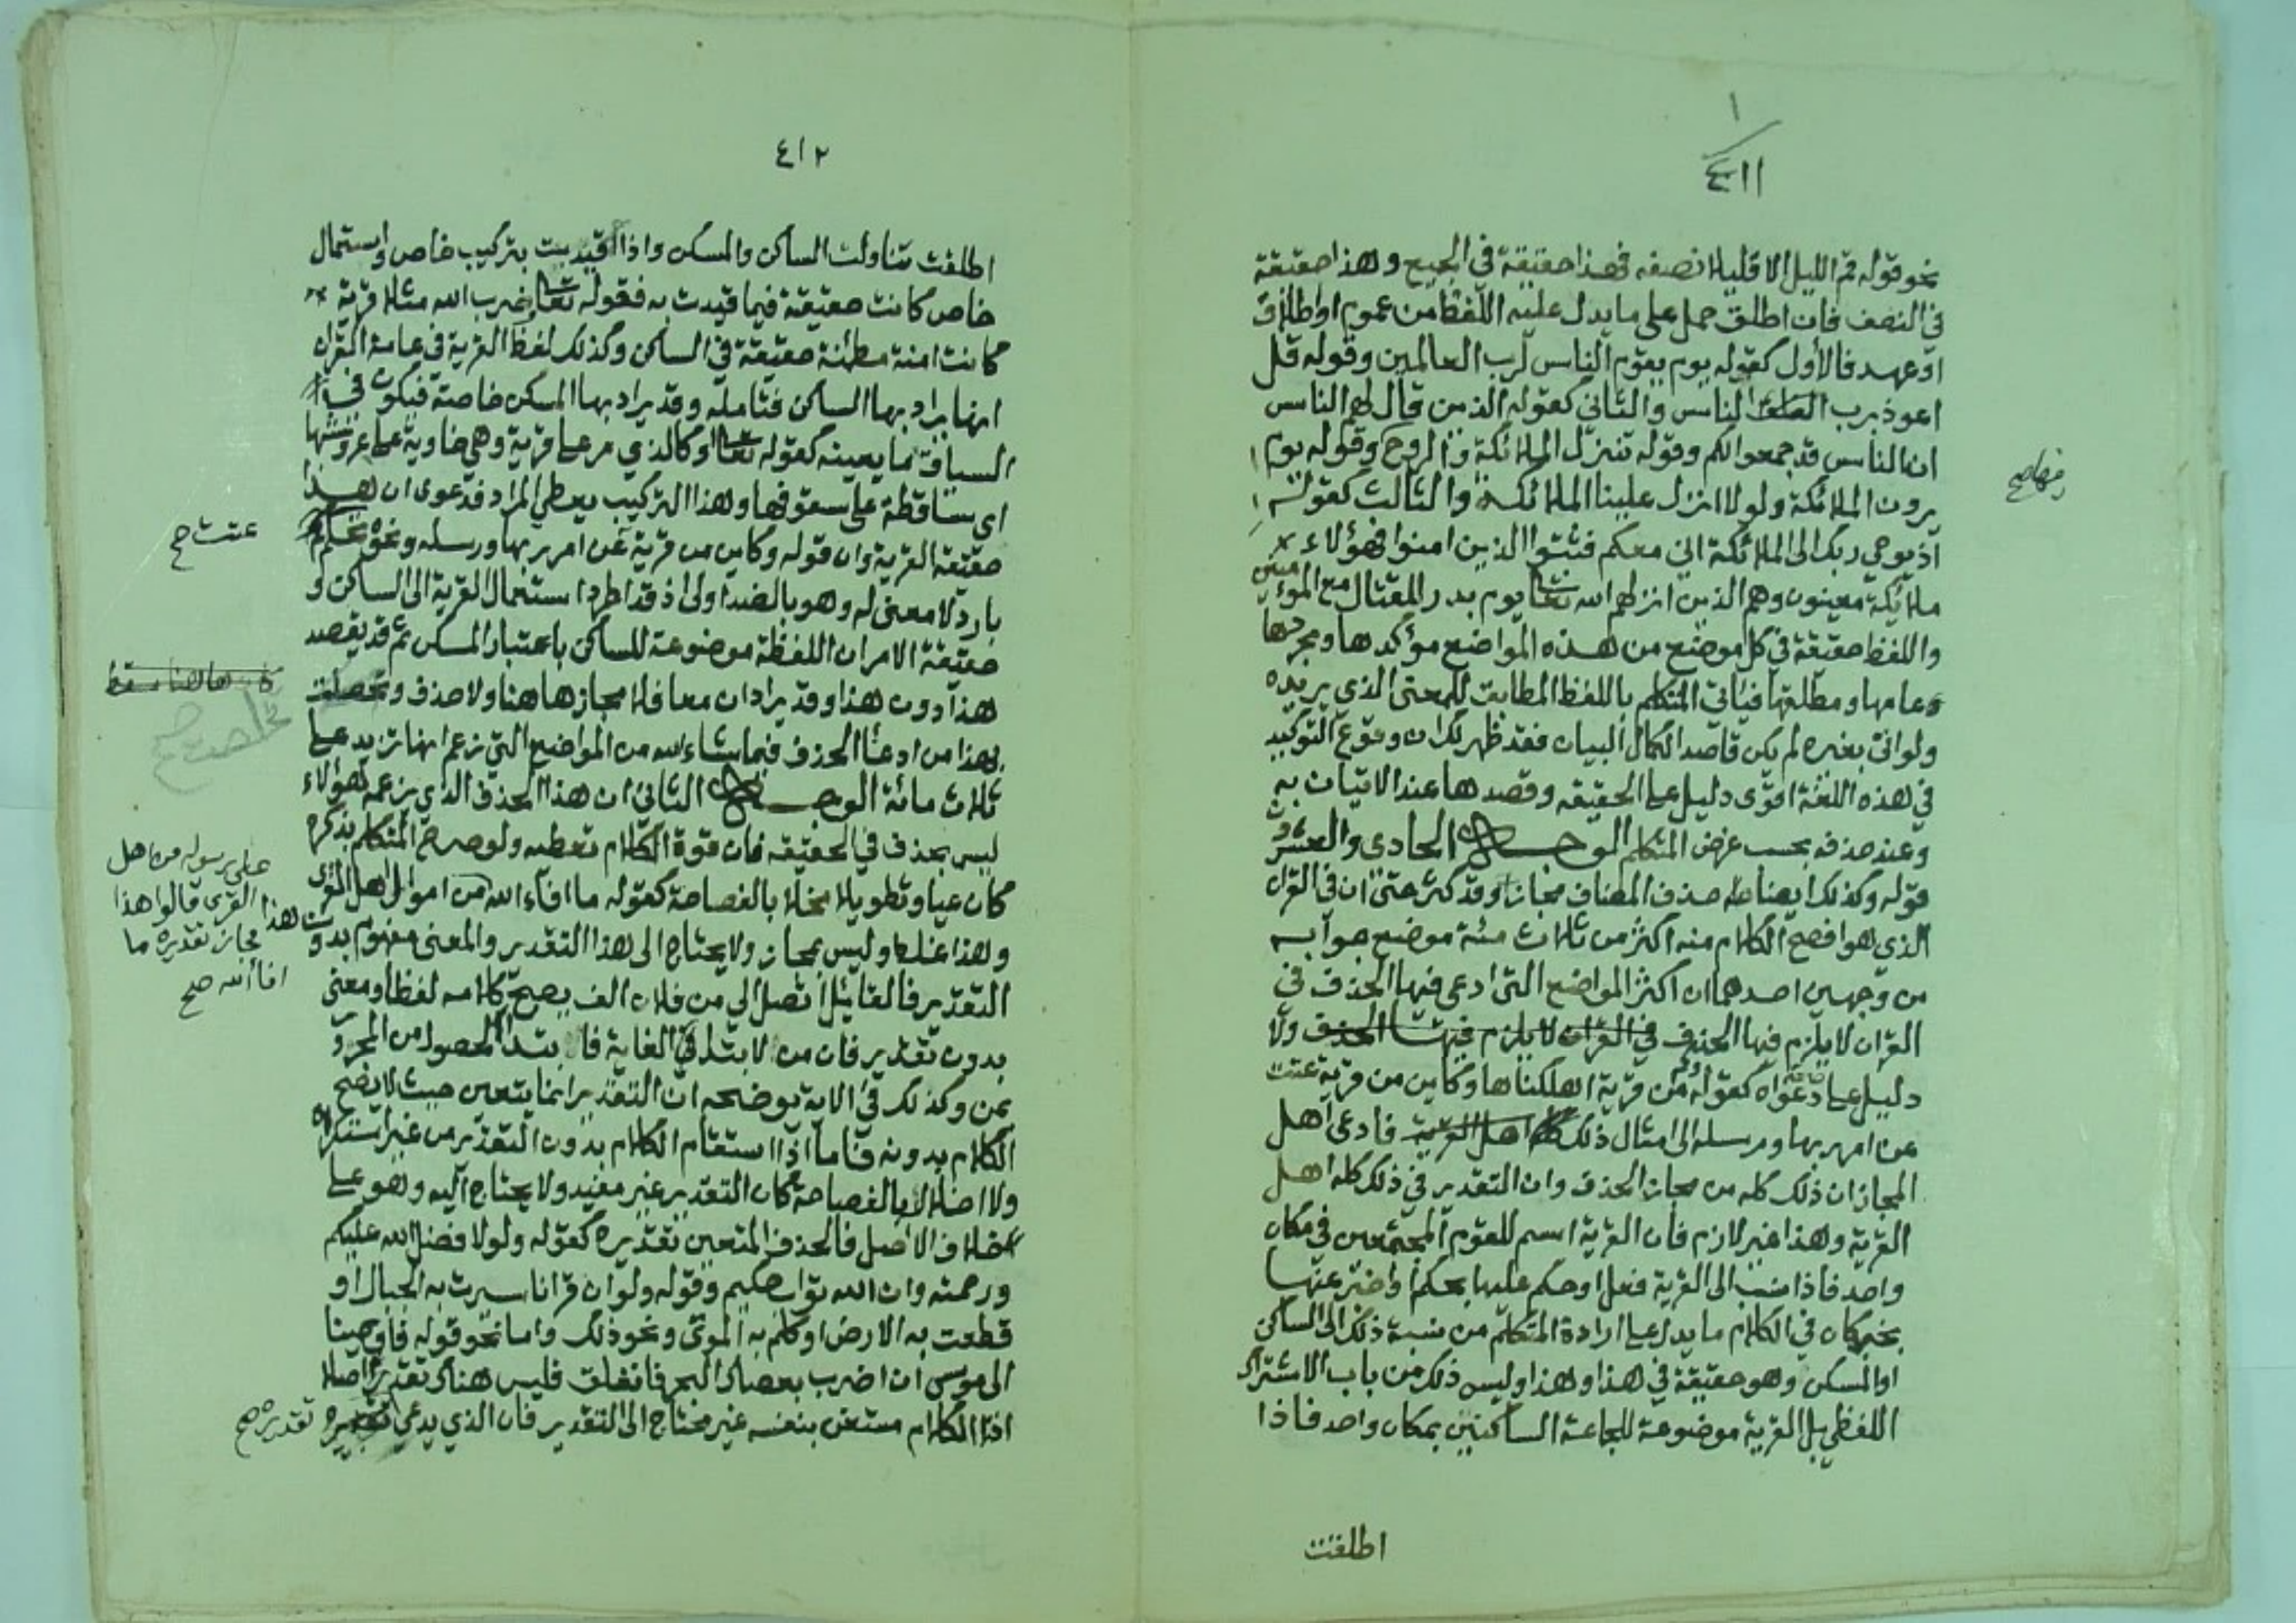 ١
٤١١
نحو قوله قم الليل الا قليلا نصفه فهذا حقيقة في الجميع وهذا حقيقة
في النصف فان اطلق حمل على ما يدل عليه اللفظ من عموم او اطلاق
او عهد فالأول كقوله يوم يقوم الناس لرب العالمين وقوله قل
اعوذ برب الناس والثاني كقوله الذين قال لهم الناس
ان الناس قد جمعوا لكم وقوله تنزل الملائكة والروح وقوله يوم
يرون الملائكة ولولا انزل علينا الملائكة والثالث كقوله
اذ يوحي ربك الى الملائكة اني معكم فثبتوا الذين امنوا فهؤلاء
ملائكة معينون وهم الذين انزلهم الله تعالى يوم بدر للقتال مع المؤمنين
واللفظ حقيقة في كل موضع من هذه المواضع مؤكدها ومجردها
وعامها ومطلقها فيأتي المتكلم باللفظ المطابق للمعنى الذي يريده
ولو اتى بغيره لم يكن قاصدا لكمال البيان فقد ظهر لك ان وقوع التوكيد
في هذه اللغة اقوى دليل على الحقيقه وقصدها عند الاتيان به
وعند حذفه بحسب غرض المتكلم الوجه الحادي والعشرون
قوله وكذلك ايضا حذف المضاف مجاز وقد كثر حتى ان في القرآن
الذي هو افصح الكلام منه اكثر من ثلاث مئة موضع جوابه
من وجهين احدهما ان اكثر المواضع التي ادعى فيها الحذف في
القرآن لا يلزم فيها الحذف في القرآن لا يلزم فيها الحذف ولا
دليل على دعواه كقوله وكم من قرية اهلكناها وكأين من قرية عتت
عن امر ربها ورسله الى امثال ذلك اهل القرية فادعى اهل
المجاز ان ذلك كله من مجاز الحذف وان التقدير في ذلك كله اهل
القرية وهذا غير لازم فان القرية اسم للقوم المجتمعين في مكان
واحد فاذا نسب الى القرية فعل او حكم عليها بحكم او اخبر عنها
بخبر كان في الكلام ما يدل على ارادة المتكلم من نسبة ذلك الى الساكن
او المسكن وهو حقيقة في هذا وهذا وليس ذلك من باب الاشتراك
اللفظي بل القرية موضوعة للجماعة الساكنين بمكان واحد فاذا
اطلقت
٤١٢
اطلقت تناولت الساكن والمسكن واذا قيدت بتركيب خاص واستعمال
خاص كانت حقيقة فيما قيدت به فقوله تعالى ضرب الله مثلا قرية
كانت امنة مطمئنة حقيقة في الساكن وكذلك لفظ القرية في عامة القرآن
انما يراد بها الساكن فتأمله وقد يراد بها المسكن خاصة فيكون في
السياق ما يعينه كقوله تعالى او كالذي مر على قرية وهي خاوية على عروشها
اي ساقطة على سقوفها وهذا التركيب يعطي المراد فدعوى ان هذا
حقيقة القرية وان قوله وكأين من قرية عن امر ربها ورسله ونحوه تحكم
عتت صح
بارد لا معنى له وهو بالضد اولى اذ قد اطرد استعمال القرية الى الساكن و
حقيقة الامر ان اللفظة موضوعة للساكن باعتبار المسكن ثم قد يقصد
هذا دون هذا وقد يرادان معا فلا مجاز ها هنا ولا حذف وتخلصت
بهذا من ادعاء الحذف فيما شاء الله من المواضع التي زعم انها تزيد على
ثلاث مائة الوجه الثاني ان هذا الحذف الذي يزعمه هؤلاء
ليس بحذف في الحقيقه فان قوة الكلام تعطيه ولو صرح المتكلم بذكره
كان عيا وتطويلا مخلا بالفصاحة كقوله ما افاء الله من اموال اهل القرى
على رسوله من اهل
القرى قالوا هذا
مجاز تقديره ما
افاء الله صح
وهذا غلط وليس بمجاز ولا يحتاج الى هذا التقدير والمعنى مفهوم بدون هذا
التقدير فالقائل اتصل الي من فلان الف يصح كلامه لفظا ومعنى
بدون تقدير فان من لابتداء الغاية فابتداء الحصول من المجرور
بمن وكذلك في الاية يوضحه ان التقدير انما يتعين حيث لا يصح
الكلام بدونه فاما اذا استقام الكلام بدون التقدير من غير استكراه
ولا اخلال بالفصاحة كان التقدير غير مفيد ولا يحتاج اليه وهو على
خلاف الاصل فالحذف المتعين تقديره كقوله ولولا فضل الله عليكم
ورحمته وان الله تواب حكيم وقوله ولو ان قرانا سيرت به الجبال او
قطعت به الارض او كلم به الموتى ونحو ذلك واما نحو قوله فاوحينا
الى موسى ان اضرب بعصاك البحر فانفلق فليس هناك تقدير اصلا
اذ الكلام مستغن بنفسه غير محتاج الى التقدير فان الذي يدعي
تقديره صح